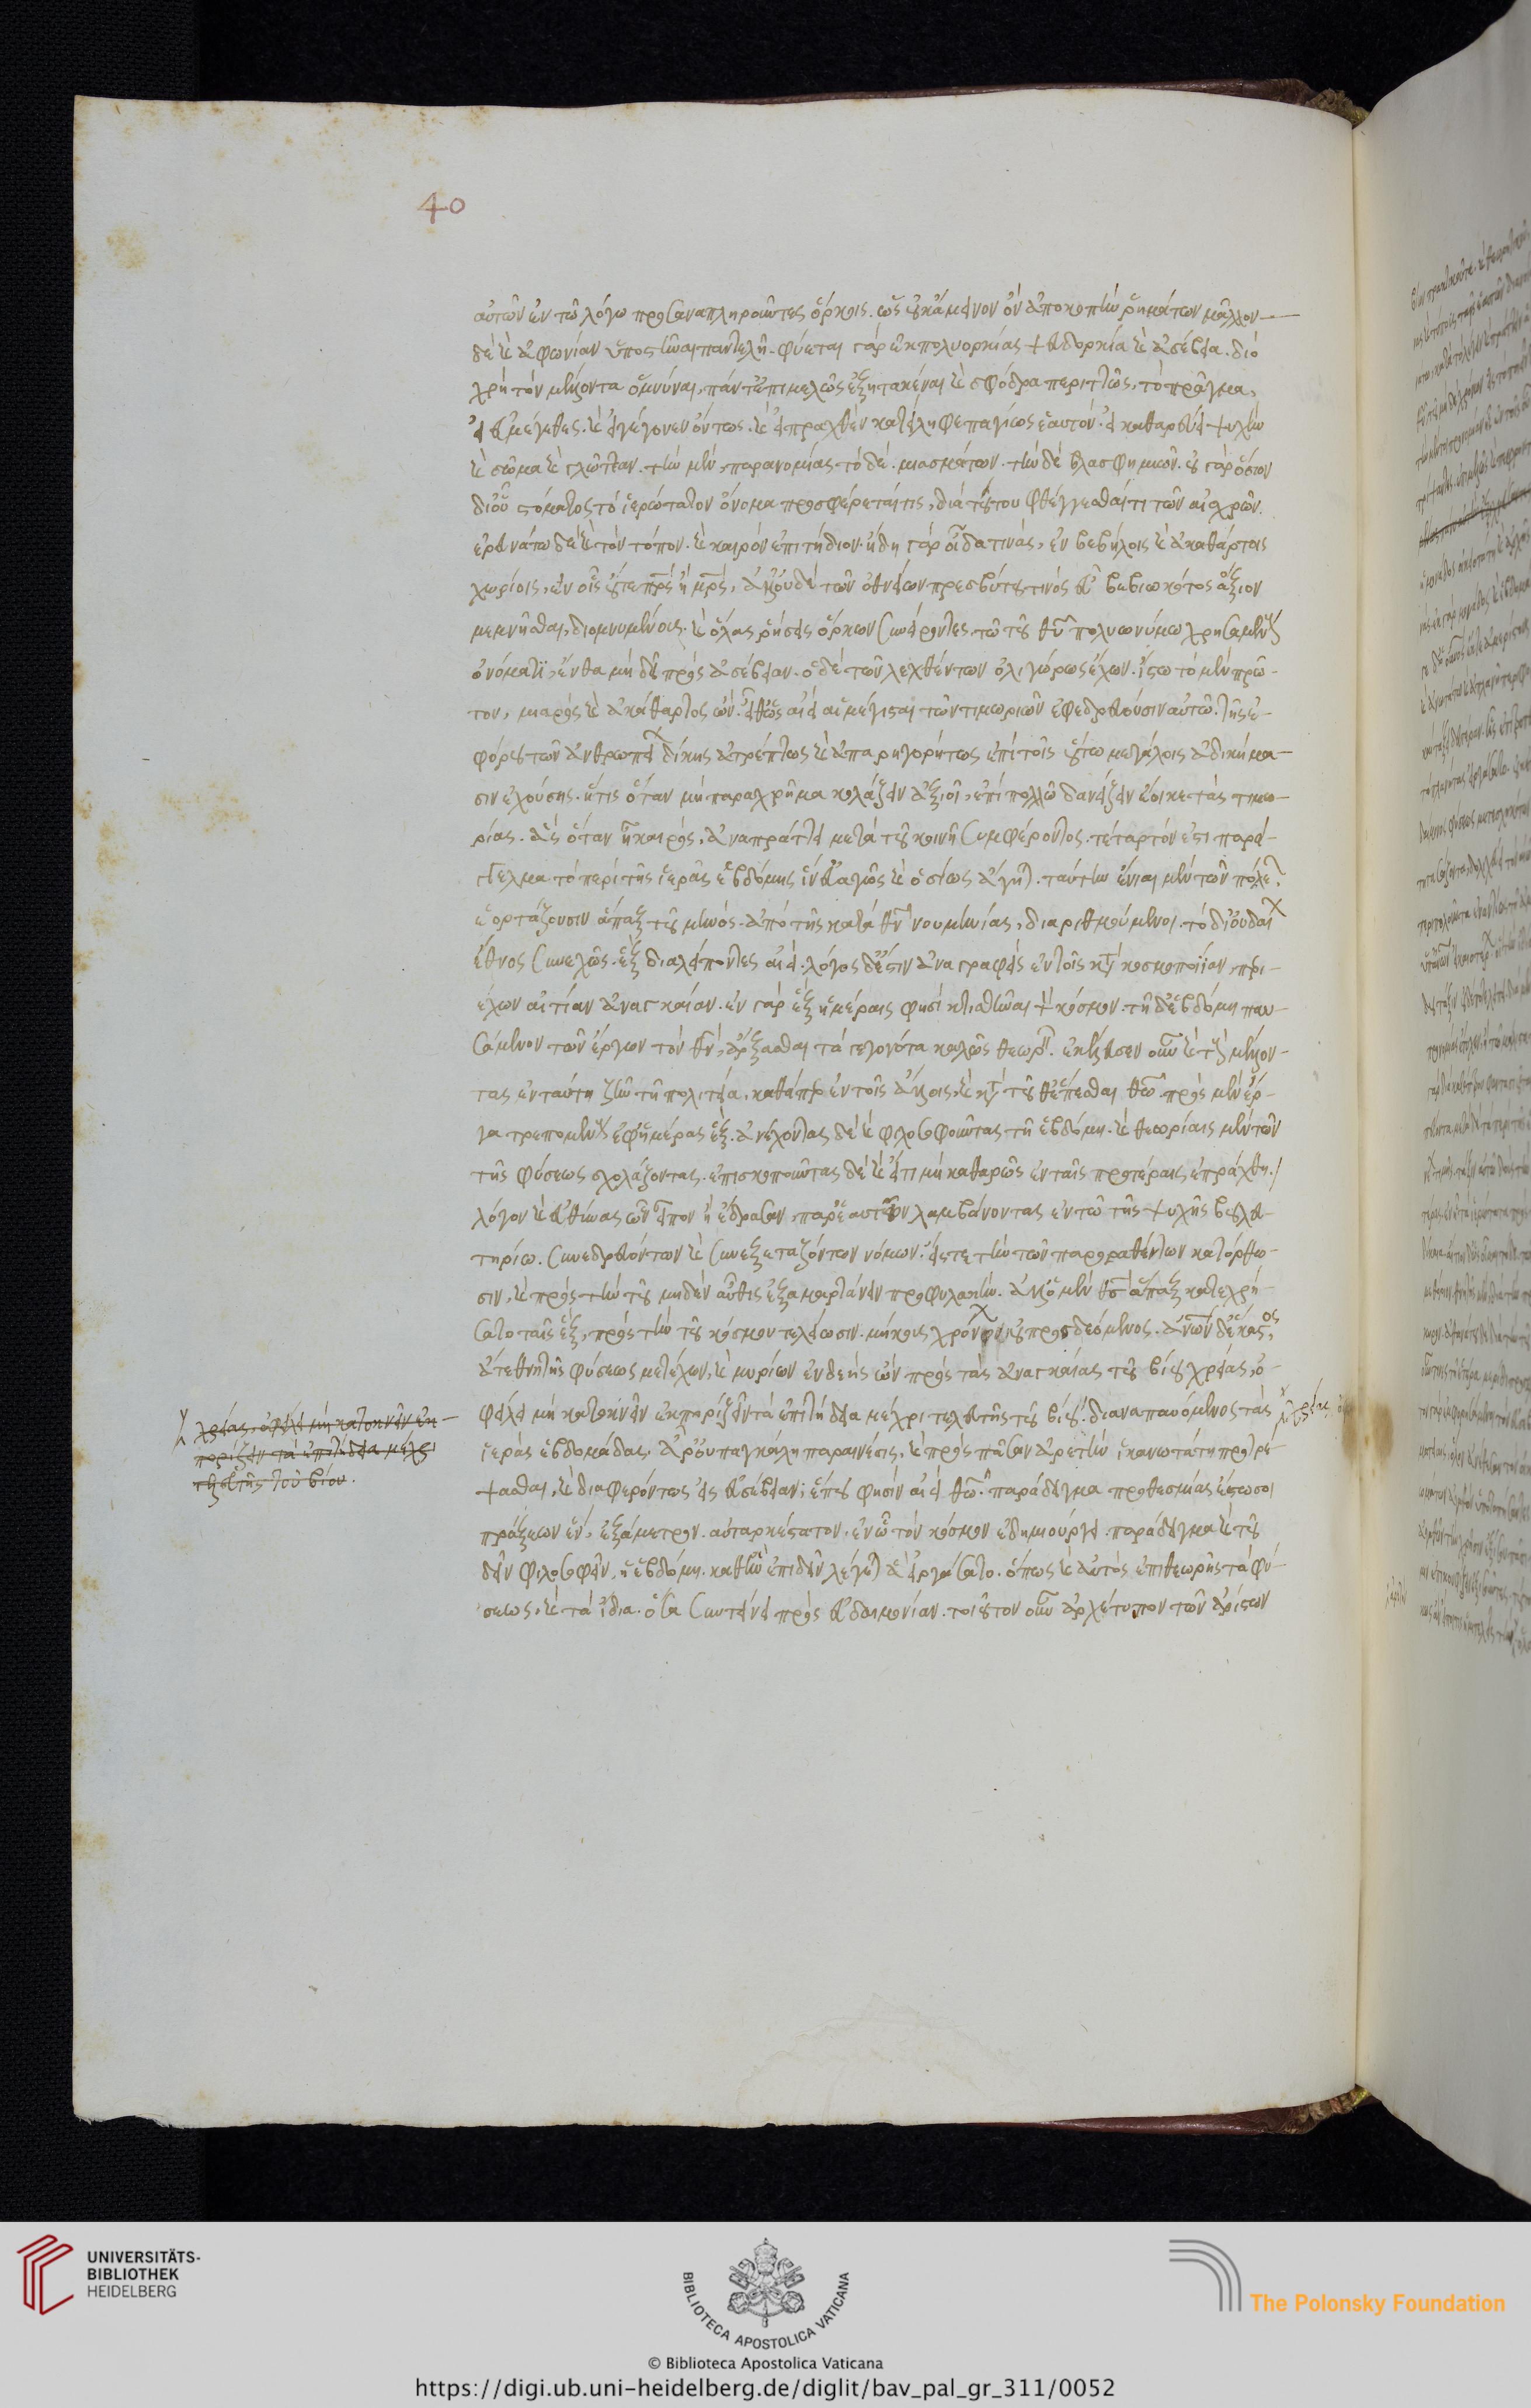 40
αὐτῶν ἐν τῷ λόγῳ προσαναπληροῦντες ὅρκοις. ὡς οὐκ ἄμεινον ὂν ἀποκοπὴν ῥημάτων μᾶλλον
δὲ καὶ ἀφωνίαν ὑποστῆναι παντελῆ. φύεται γὰρ ἐκ πολυορκίας ψευδορκία καὶ ἀσέβεια. διὸ
χρὴ τὸν μέλλοντα ὀμνύναι, πάντ' ἐπιμελῶς ἐξητακέναι καὶ σφόδρα περιττῶς, τὸ πρᾶγμα,
εἰ εὐμέγεθες. καὶ εἰ γέγονεν ὄντως. καὶ εἰ πραχθὲν κατείληφε παγίως ἑαυτὸν. εἰ καθαρεύει ψυχὴν
καὶ σῶμα καὶ γλῶτταν. τὴν μὲν, παρανομίας τὸ δὲ. μιασμάτων. τὴν δὲ βλασφημιῶν. οὐ γὰρ ὅσιον
δι' οὗ στόματος τὸ ἱερώτατον ὄνομα προσφέρεταί τις, διὰ τούτου φθέγγεσθαί τι τῶν αἰσχρῶν.
ἐρευνάτω δὲ καὶ τὸν τόπον. καὶ καιρὸν ἐπιτήδειον. ἤδη γὰρ οἶδα τινὰς, ἐν βεβήλοις καὶ ἀκαθάρτοις
χωρίοις, ἐν οἷς οὔτε πρς ἢ μρς, ἀλλ' οὐδὲ τῶν ὀθνείων πρεσβύτου τινὸς εὖ βεβιωκότος ἄξιον
μεμνῆσθαι, διομνυμένους. καὶ ὅλας ῥήσεις ὅρκων συνείροντες, τῷ τοῦ θυ πολυωνύμῳ χρησαμένους
ὀνόματι, ἔνθα μὴ δεῖ πρὸς ἀσέβειαν. ὁ δὲ τῶν λεχθέντων ὀλιγώρως ἔχων. ἴστω τὸ μὲν πρῶ-
τον, μιαρὸς καὶ ἀκάθαρτος ὤν. εἶθ' ὡς αἰεὶ αἱ μέγισται τῶν τιμωριῶν ἐφεδρεύουσιν αὐτῷ. τῆς ἐ-
φόρου τῶν ἀνθρωπείων δίκης ἀτρέπτως καὶ ἀπαρηγορήτως ἐπὶ τοῖς οὕτω μεγάλοις ἀδικήμα-
σιν ἐχούσης. ἥτις ὅταν μὴ παραχρῆμα κολάζειν ἀξιοῖ, ἐπὶ πολλῷ δανείζειν ἔοικε τὰς τιμω-
ρίας. ἃς ὅταν ᾖ καιρὸς, ἀναπράττει μετὰ τοῦ κοινῇ συμφέροντος. τέταρτόν ἐστι παράγ-
γελμα τὸ περὶ τῆς ἱερᾶς ἑβδόμης ἵν' εὐαγῶς καὶ ὁσίως ἄγηται. ταύτην ἔνιαι μὲν τῶν πόλεων
ἑορτάζουσιν ἅπαξ τοῦ μηνός. ἀπὸ τῆς κατὰ θν νουμηνίας, διαριθμούμενοι. τὸ δ' Ἰουδαίων
ἔθνος συνεχῶς. ἓξ διαλείποντες αἰεί. λόγος δ' ἐστὶν ἀναγραφεὶς ἐν τοῖς κατὰ τὴν κοσμοποιίαν, περι-
έχων αἰτίαν ἀναγκαίαν. ἐν γὰρ ἓξ ἡμέραις φησὶ κτισθῆναι τὸν κόσμον. τῇ δ' ἑβδόμῃ παυ-
σάμενον τῶν ἔργων τὸν θν, ἄρξασθαι τὰ γεγονότα καλῶς θεωρεῖν. ἐκέλευσεν οὖν καὶ τοὺς μέλλον-
τας ἐν ταύτῃ ζῆν τῇ πολιτείᾳ, καθάπερ ἐν τοῖς ἄλλοις, καὶ κατὰ τοῦθ' ἕπεσθαι θω. πρὸς μὲν ἔρ-
γα τρεπομένους ἐφ' ἡμέρας ἕξ. ἀνέχοντας δὲ καὶ φιλοσοφοῦντας τῇ ἑβδόμῃ. καὶ θεωρίαις μὲν τῶν
τῆς φύσεως σχολάζοντας. ἐπισκοποῦντας δὲ καὶ εἴ τι μὴ καθαρῶς ἐν ταῖς προτέραις ἐπράχθη.
λόγον καὶ εὐθύνας ὧν εἶπον ἢ ἔδρασαν παρ' ἑαυτῶν λαμβάνοντας ἐν τῷ τῆς ψυχῆς βουλευ-
τηρίῳ. συνεδρευόντων καὶ συνεξεταζόντων νόμων. εἴς τε τὴν τῶν παροραθέντων κατόρθω-
σιν, καὶ πρὸς τὴν τοῦ μηδὲν αὖθις ἐξαμαρτάνειν προφυλακήν. ἀλλ' ὁ μὲν θς ἅπαξ κατεχρή-
σατο ταῖς ἓξ, πρὸς τὴν τοῦ κόσμου τελείωσιν. μήκους χρόνων οὐ προσδεόμενος. ἀνων δ' ἕκαστος,
ἅτε θνητῆς φύσεως μετέχων, καὶ μυρίων ἐνδεὴς ὢν πρὸς τὰς ἀναγκαίας τοῦ βίου χρείας, ὀ-
φείλει μὴ κατοκνεῖν ἐκπορίζειν τὰ ἐπιτήδεια μέχρι τελευτῆς τοῦ βίου. διαναπαυόμενος τὰς
ἱερὰς ἑβδομάδας. ἆρ' οὐ παγκάλη παραίνεσις, καὶ πρὸς πᾶσαν ἀρετὴν ἱκανωτάτη προτρέ-
ψασθαι, καὶ διαφερόντως εἰς εὐσέβειαν; ἕπου φησὶν αἰεὶ θω. παράδειγμα προθεσμίας ἔστω σοι
πράξεων ἓν, ἑξάμετρον. αὐταρκέστατον. ἐν ᾧ τὸν κόσμον ἐδημιούργει. παράδειγμα καὶ τοῦ
δεῖν φιλοσοφεῖν, ἡ ἑβδόμη. καθ' ἣν ἐπιδεῖν λέγεται ἃ εἰργάσατο. ὅπως καὶ αὐτὸς ἐπιθεωρῇς τὰ φύ-
σεως, καὶ τὰ ἴδια. ὅσα συντείνει πρὸς εὐδαιμονίαν. τοιοῦτον οὖν ἀρχέτυπον τῶν ἀρίστων
χρείας, ὀφείλει μὴ κατοκνεῖν ἐκ-
πορίζειν τὰ ἐπιτήδεια μέχρι
τελευτῆς τοῦ βίου.
UNIVERSITÄTS-
BIBLIOTHEK
HEIDELBERG
BIBLIOTECA APOSTOLICA VATICANA
The Polonsky Foundation
© Biblioteca Apostolica Vaticana
https://digi.ub.uni-heidelberg.de/diglit/bav_pal_gr_311/0052